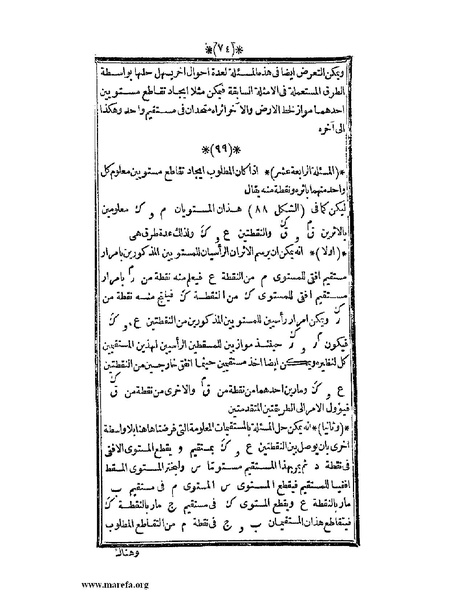 *(٧٤)*
ويمكن التعرض ايضا فى هذه المسئلة لعدة احوال اخر يسهل حلها بواسطة
الطرق المستعملة فى الامثلة السابقة فيمكن مثلا ايجاد تقاطع مستويين
احدهما مواز لخط الارض والآخر اثراه متحدان فى مستقيم واحد وهكذا
الى آخره
*(٩٩)*
*(المسئلة الرابعة عشر)* اذا كان المطلوب ايجاد تقاطع مستويين معلوم كل
واحد منهما باثره ونقطة منه يقال
ليكن كما فى (الشكل ٨٨) هذان المستويان م و ك معلومين
بالاثرين ق و ق والنقطتين ع و ك ولذلك عدة طرق هى
*(اولا)* انه يمكن ان يرسم الاثران الرأسيان للمستويين المذكورين بامرار
مستقيم افقى للمستوى م من النقطة ع فيعلم منه نقطة من م بامرار
مستقيم افقى للمستوى ك من النقطة ك فينتج منه نقطة من
ك ويمكن امرار رأسيين للمستويين المذكورين من النقطتين ع و ك
فيكون و حينئذ موازيين للمسقطين الرأسيين لهذين المستقيمين
كل لنظيره ويمكن ايضا اخذ مستقيمين حيثما اتفق خارجين من النقطتين
ع و ك ومارين احدهما من نقطة من ق والاخرى من نقطة من ق
فيؤول الامر الى الطريقتين المتقدمتين
*(وثانيا)* انه يمكن حل المسئلة بالمستقيمات المعلومة التى فرضناها هنا بلا واسطة
اخرى بان يوصل بين النقطتين ع و ك بمستقيم و يقطع المستوى الافقى
فى نقطة د ثم يمر بهذا المستقيم مستو ما س وليعتبر المستوى المسقط
افقيا للمستقيم فيقطع المستوى س المستوى م فى مستقيم ب
مار بالنقطة ع ويقطع المستوى ك فى مستقيم ج مار بالنقطة ك
فيتقاطع هذان المستقيمان ب و ج فى نقطة م من التقاطع المطلوب
وهناك
www.marefa.org